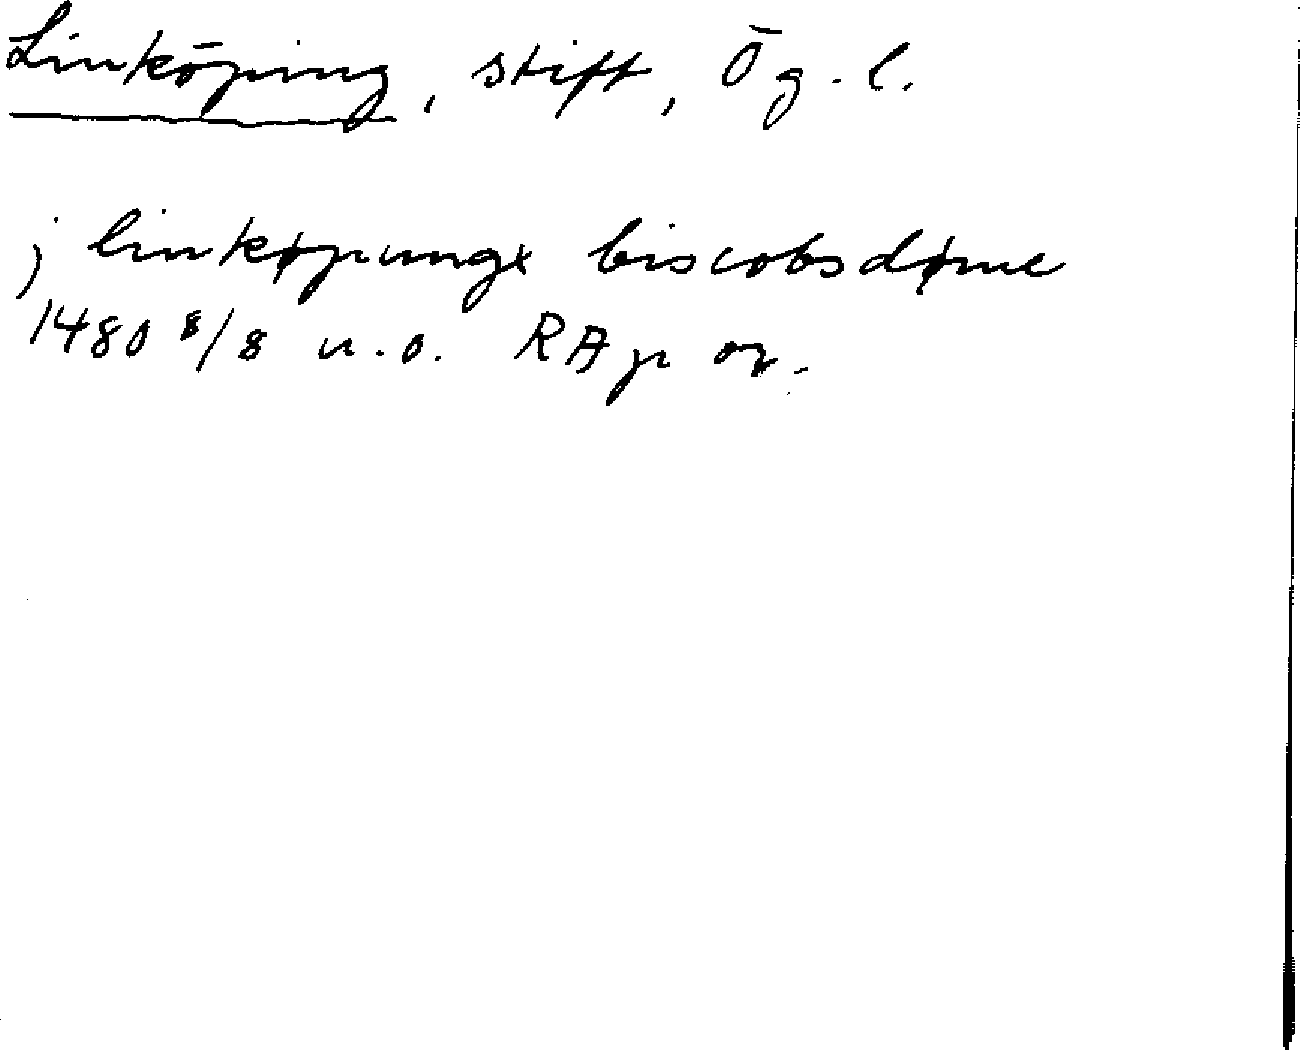 Linköping, stift, Ög. l.
j linkøpungx biscobsdøme
1480 8/8 u.o. RAp or.